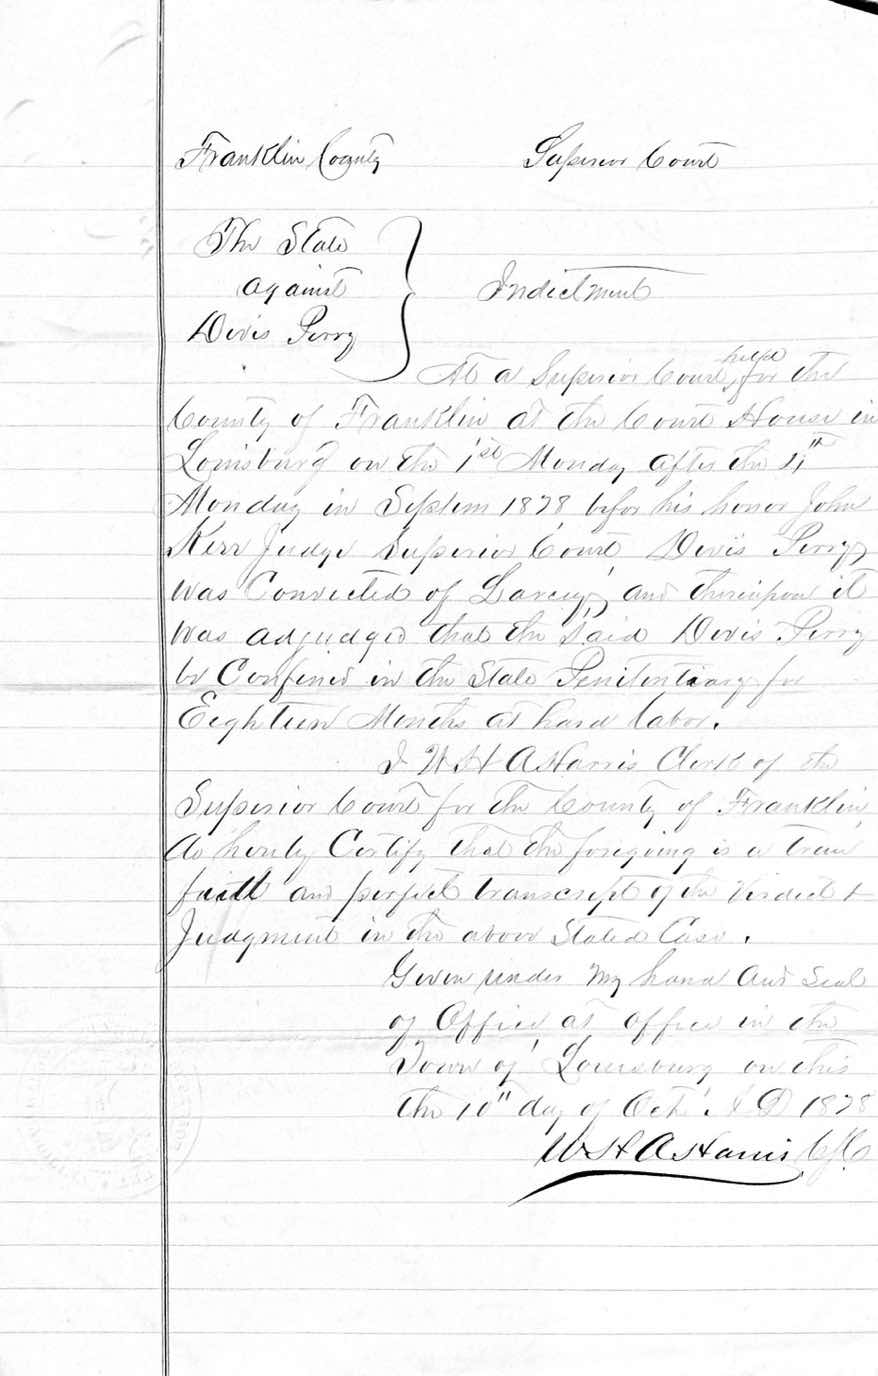 Franklin County Superior Court
The State
against
Devis Perry
Indictment
At a Superior Court held for the
County of Franklin at the Court House in
Louisburg on the 1st Monday after the 4th
Monday in Septem 1878 befor his honor John
Kerr Judge Superior Court, Devis Perry
was Convicted of Larceny, and thereupon it
was adjudged that the said Devis Perry
be Confined in the State Penitentiary for
Eighteen Months at hard labor.
I W H A Harris Clerk of the
Superior Court for the County of Franklin,
do herby Certify that the foregoing is a true
full and perfect transcript of the Verdict &
Judgment in the above Stated Case.
Given under My hand and Seal
of Office at office in the
Town of Louisburg on this
the 10" day of Oct. A D 1878
W H A Harris CSC